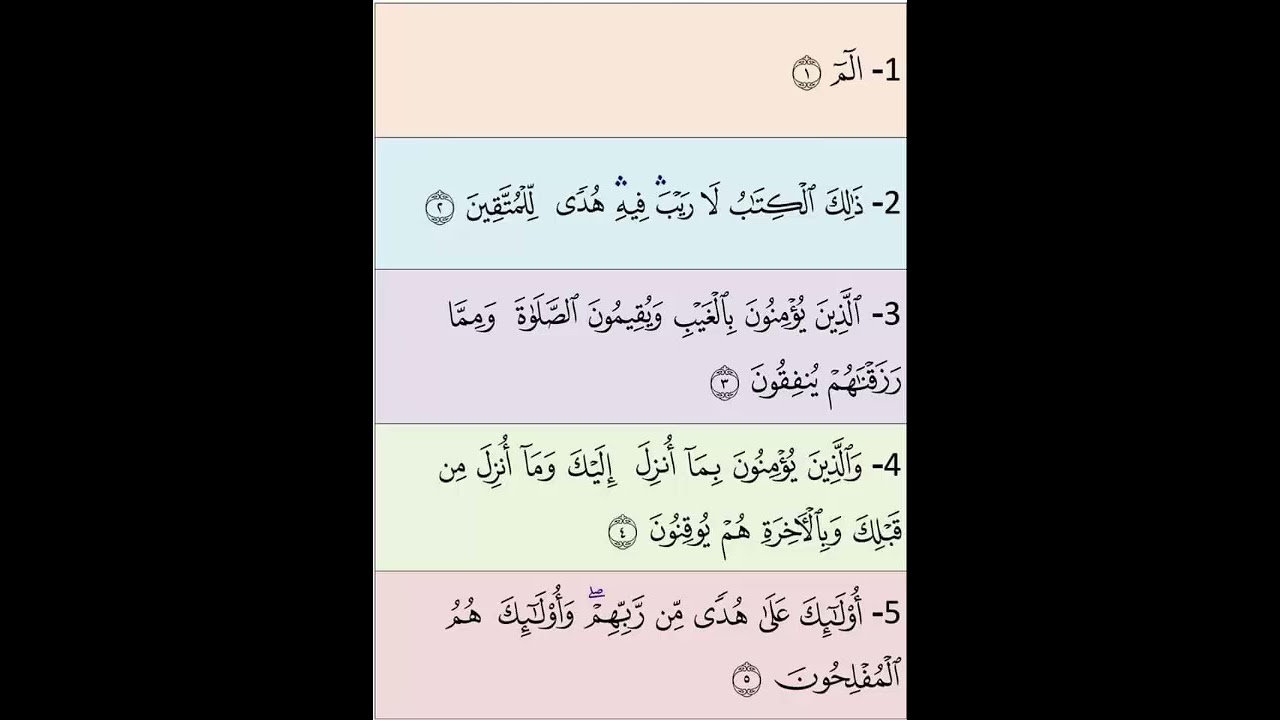 1- الٓمٓ ١
2- ذَٰلِكَ ٱلْكِتَٰبُ لَا رَيْبَ ۛ فِيهِ ۛ هُدًى لِّلْمُتَّقِينَ ٢
3- ٱلَّذِينَ يُؤْمِنُونَ بِٱلْغَيْبِ وَيُقِيمُونَ ٱلصَّلَوٰةَ وَمِمَّا
رَزَقْنَٰهُمْ يُنفِقُونَ ٣
4- وَٱلَّذِينَ يُؤْمِنُونَ بِمَآ أُنزِلَ إِلَيْكَ وَمَآ أُنزِلَ مِن
قَبْلِكَ وَبِٱلْأَخِرَةِ هُمْ يُوقِنُونَ ٤
5- أُو۟لَٰٓئِكَ عَلَىٰ هُدًى مِّن رَّبِّهِمْ ۖ وَأُو۟لَٰٓئِكَ هُمُ
ٱلْمُفْلِحُونَ ٥